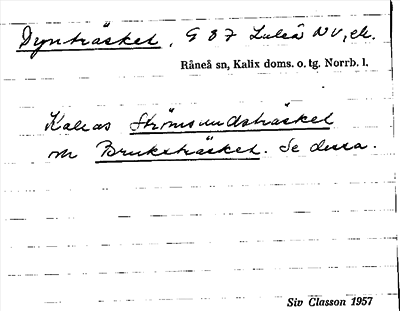 Dynträsket, G 87 Luleå NV, ek.
Råneå sn, Kalix doms. o. tg. Norrb. l.
Kallas Strömsundsträsket
om Bruksträsket. Se dessa.
Siv Classon 1957